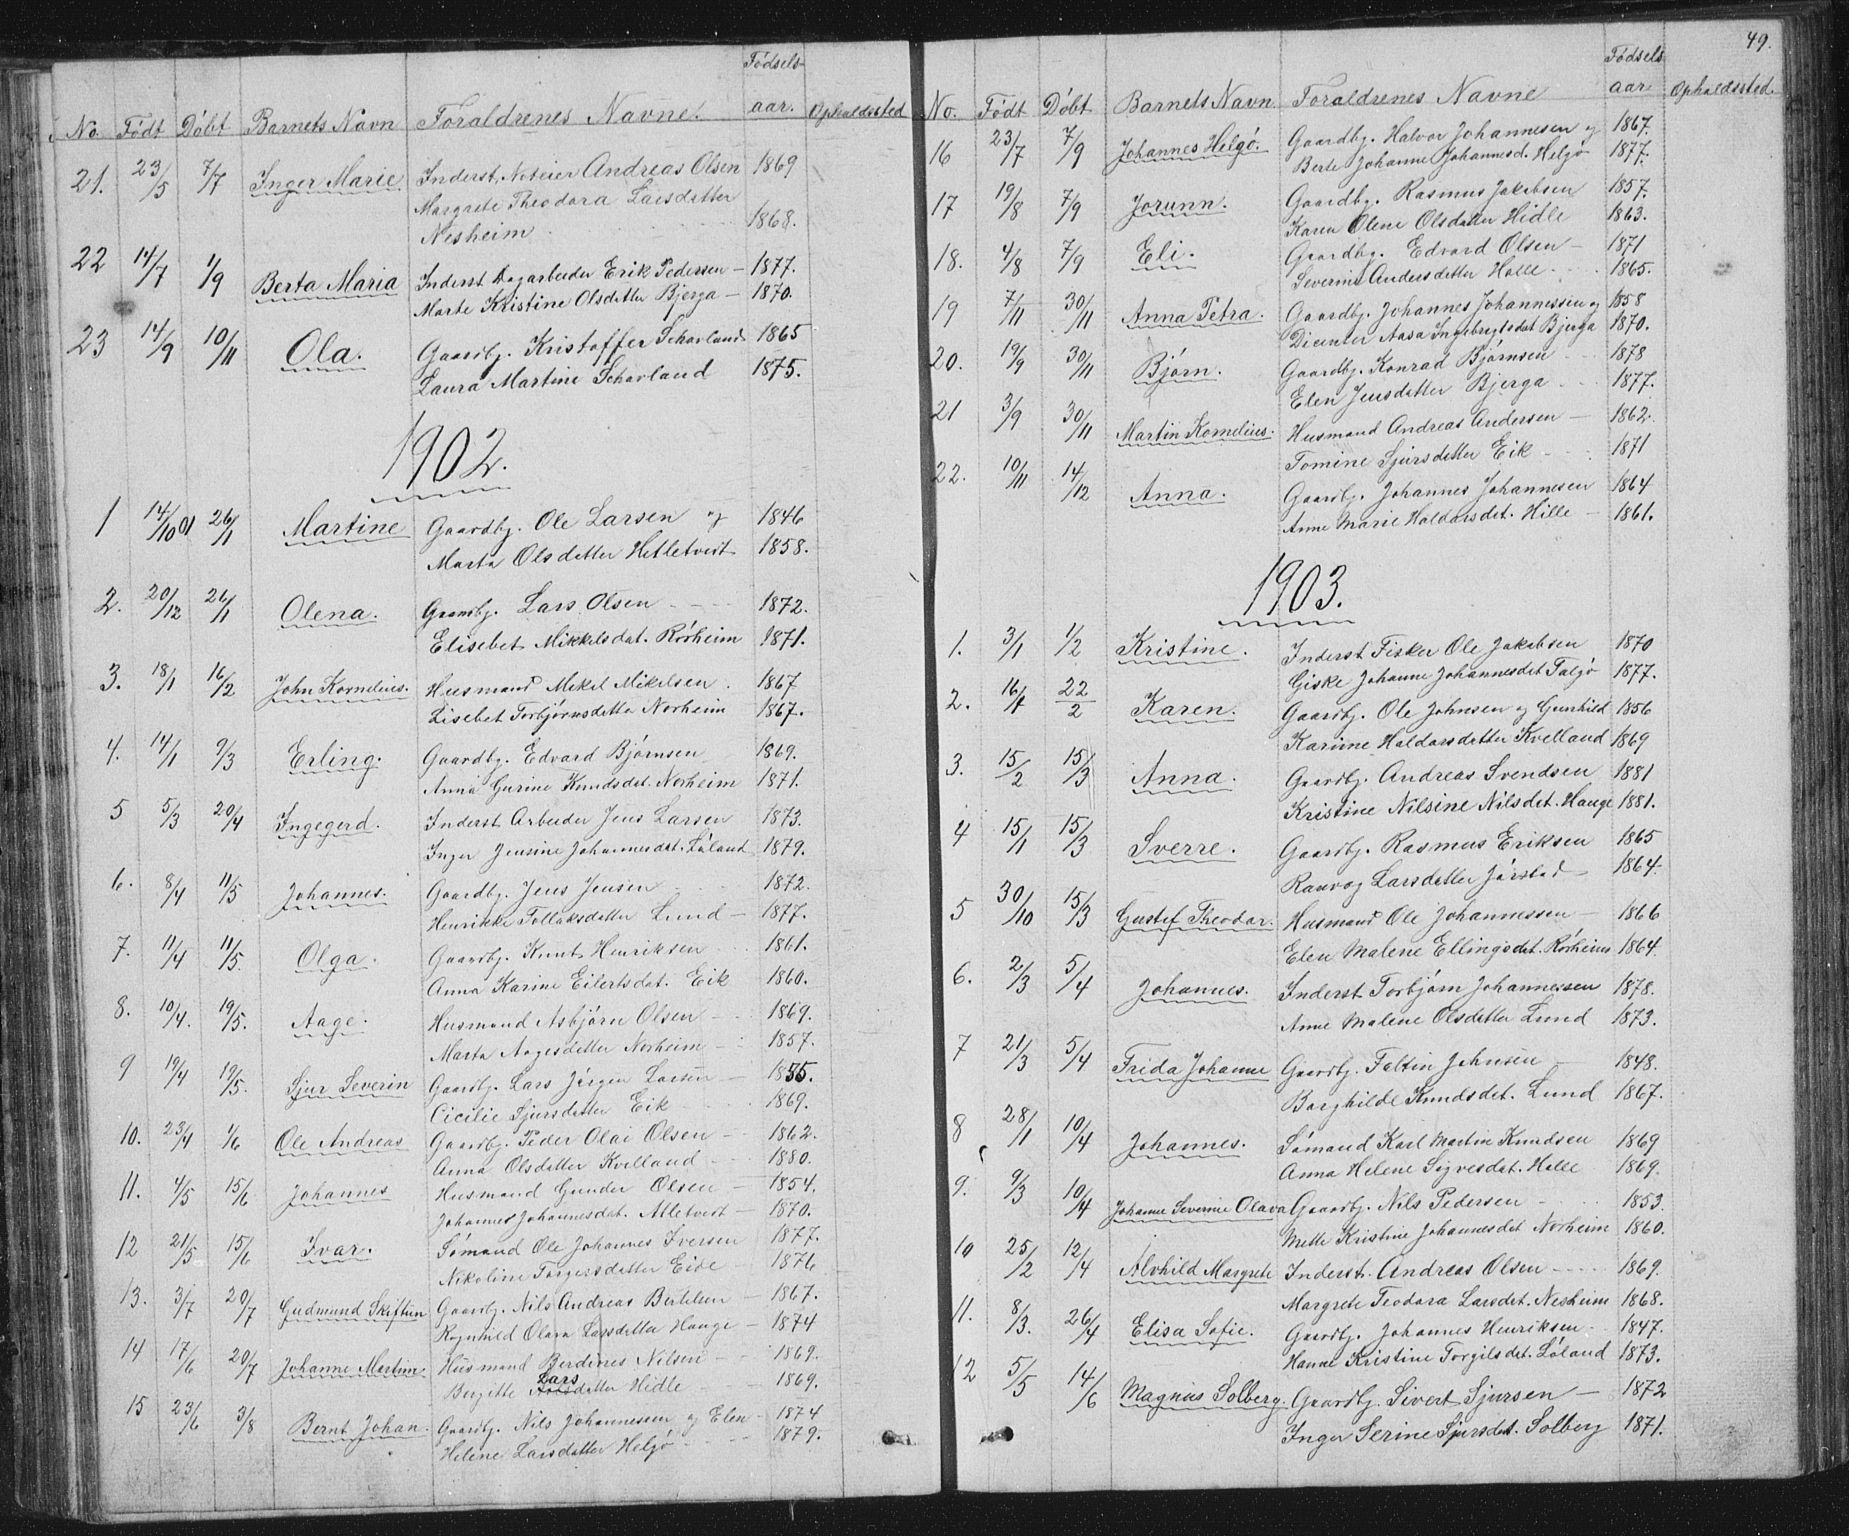 No. Født Døbt Barnets Navn Foraldrenes Navne. Fødsels-aar. Opholdssted
21. 23/5 7/7 Inger Marie Inderst, Noteier Andreas Olsen 1869
Margrete Theodora Larsdatter
Nesheim 1868.
22 14/7 1/9 Berta Maria Inderst Dagarbeider Erik Pedersen – 1877.
Marte Kristine Olsdatter Bjerga – 1870.
23 14/9 10/11 Ola. Gaardbg. Kristoffer Scharland 1865
Laura Martine Scharland 1875.
1902.
1 14/10 01 26/1 Martine Gaardbg. Ole Larsen og 1846
Marta Olsdatter Hetletvert 1858.
2. 20/12 26/1 Olena. Gaardbg. Lars Olsen 1872.
Elisebet Mikkelsdat. Rørheim 1871.
3. 18/1 16/2 John Kornelius. Husmand Mikel Mikelsen. 1867
Lisebet Torbjørnsdatter Norheim 1867.
4. 14/1 9/3 Erling. Gaardbg. Edvard Bjørnsen 1869.
Anna Gurine Knudsdat. Norheim 1871.
5 5/3 20/4 Ingegerd. Inderst Arbeider Jens Larsen 1873.
Inger Jensine Johannesdat. Løland 1879.
6. 8/4 11/5 Johannes. Gaardbg. Jens Jensen 1872.
Henrikke Tollaksdatter Lund – 1877.
7. 11/4 11/5. Olga. Gaardbg. Knut Henriksen 1861.
Anna Karine Eilertsdat. Eik 1860.
8. 10/4. 19/5. Aage. Husmand Asbjørn Olsen – 1869.
Marta Aagesdatter Norheim – 1857.
9 19/4 19/5. Sjur Severin Gaardbg. Lars Jørgen Larsen – 1855.
Cicilie Sjursdatter Eik 1869.
10. 23/4 1/6 Ole Andreas Gaardbg. Peder Olai Olsen – 1862.
Anna Olsdatter Kvelland 1880.
11. 4/5 15/6 Johannes Husmand Gunder Olsen – 1854.
Johanne Johannesdat. Alletvert – 1870.
12 21/5 15/6 Ivar. Sømand Ole Johannes Iversen 1877.
Nikoline Torgersdatter Eide – 1876
13. 3/7 20/7 Gudmund Skiftun Gaardbg. Nils Andreas Bertelsen – 1867.
Ragnhild Olava Larsdatter Hauge – 1874
14 17/6 20/7 Johanne Martine. Husmand Berdines Nilsen – 1869.
Bergitte Larsdatter Hidle 1869.
15 23/6 3/8 Bernt Johan. Gaardbg. Nils Johannessen og Elen 1874
Helene Larsdatter Helgø 1879.
49.
No. Født Døbt Barnets Navn Foraldrenes Navne Fødsels aar Opholdssted.
16 23/7 7/9 Johannes Helgø. Gaardbg. Halvor Johannesen og 1867.
Berte Johanne Johannesd. Helgø 1877.
17 19/8 7/9 Jorunn. Gaardbg. Rasmus Jakobsen 1857.
Karen Olene Olsdatter Hidle 1863.
18. 4/8 7/9 Eli. Gaardbg. Edvard Olsen – 1871
Severine Andersdatter Halle 1865.
19 7/11 30/11 Anna Petra. Gaardbg. Johannes Johannessen og 1858
Aasa Ingebregtsdat Bjerga 1870.
20. 19/9 30/11 Bjørn. Gaardbg. Konrad Bjørnsen 1878
Elen Jensdatter Bjerga 1877.
21 3/9 30/11 Martin Kornelius. Husmand Andreas Andersen – 1862.
Tomine Sjursdatter Eik 1871
22. 10/11 14/12 Anna. Gaardbg. Johannes Johannesen 1864
Anne Marie Haldorsdat. Hille – 1861.
1903.
1. 3/1 1/2 Kristine. Inderst Fisker Ole Jakobsen 1870
Giske Johanne Johannesdat Talgø 1877.
2. 16/1 22/2 Karen. Gaardbg. Ole Johnsen og Gunhild 1856
Karine Haldorsdatter Kvelland 1869
3. 15/2 15/3 Anna. Gaardbg. Andreas Svendsen 1881
Kristine Nilsine Nilsdet. Hauge 1881.
4 15/1 15/3 Sverre. Gaardbg. Rasmus Eriksen 1865
Ranvog Larsdatter Jørstad – 1864.
5 30/10 15/3 Gustef Theodor. Husmand Ole Johannessen – 1866
Elen Malene Ellingsdet. Rørheim 1864.
6. 2/3 5/4 Johannes. Inderst Torbjørn Johannessen 1878.
Anne Malene Olsdatter Lund 1873.
7 21/3 5/4 Frida Johanne Gaardbg. Foltin Johnsen 1848.
Borghilde Knudsdet. Lund 1867.
8 28/1 10/4 Johannes. Sømand Karl Martin Knudsen 1869
Anna Helene Sigvesdat. Halle 1869.
9. 9/3 10/4 Johanne Severine Olava Gaardbg. Nils Pedersen – 1853.
Mette Kristine Johannesdet Norheim 1860.
10 25/2 12/4 Alvhild Margrete Inderst. Andreas Olsen 1869.
Margrete Teodora Larsdet. Nesheim 1868.
11. 8/3. 26/4 Elisa Sofie. Gaardbg. Johannes Henriksen. 1847.
Hanne Kristine Torgilsdet. Løland 1873.
12 5/5 14/6 Magnus Solberg. Gaardbg. Sivert Sjursen – 1872
Inger Serine Sjursdet. Solberg 1871.